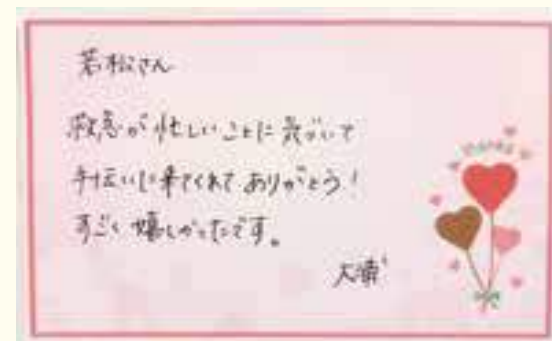 若松さん
救急が忙しいことに気づいて
手伝いに来てくれてありがとう!
すごく嬉しかったです。
大浦